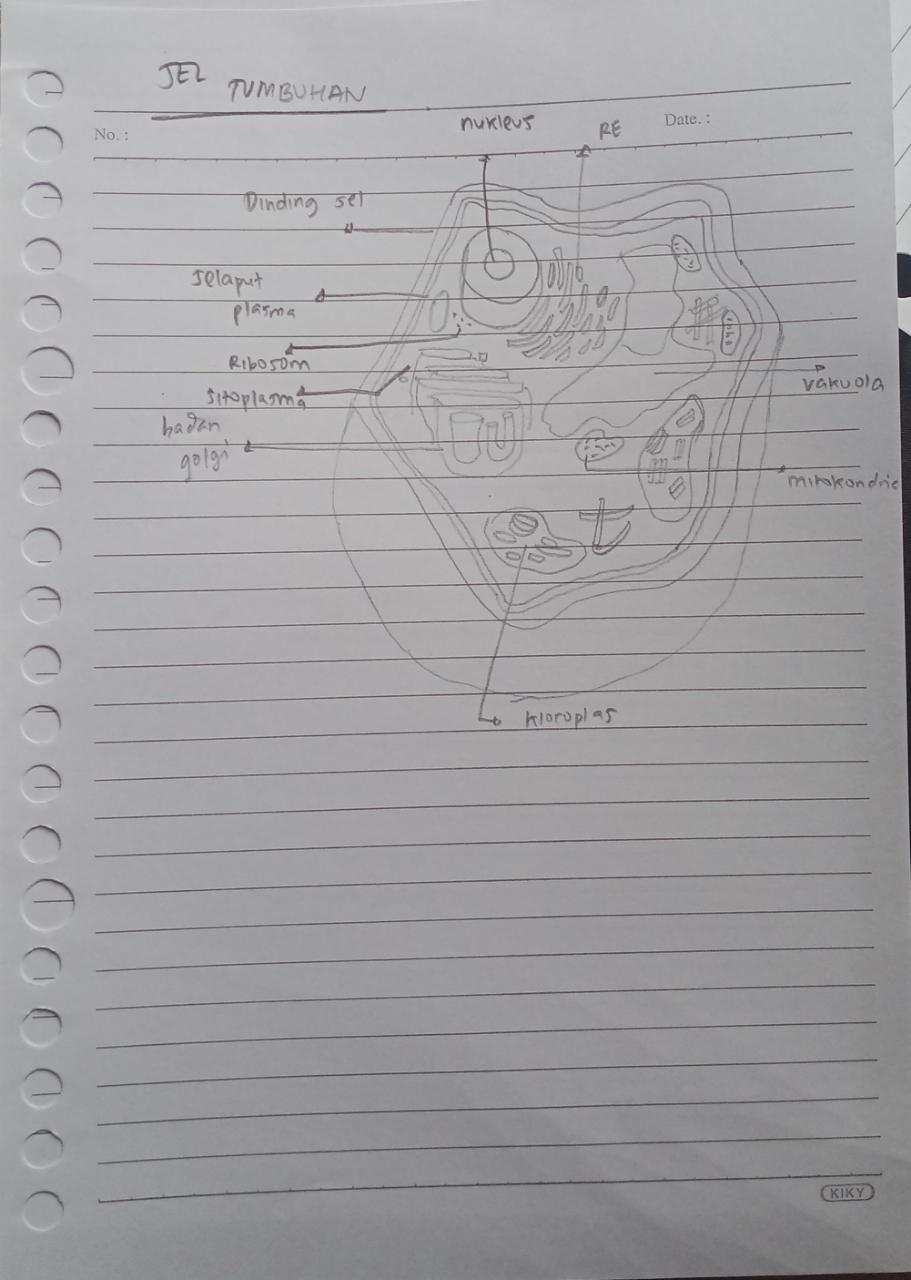 SEL
TUMBUHAN
No. :
Date. :
nukleus
RE
Dinding sel
Selaput
plasma
Ribosom
Sitoplasma
badan
golgi
vakuola
mitokondria
kloroplas
KIKY